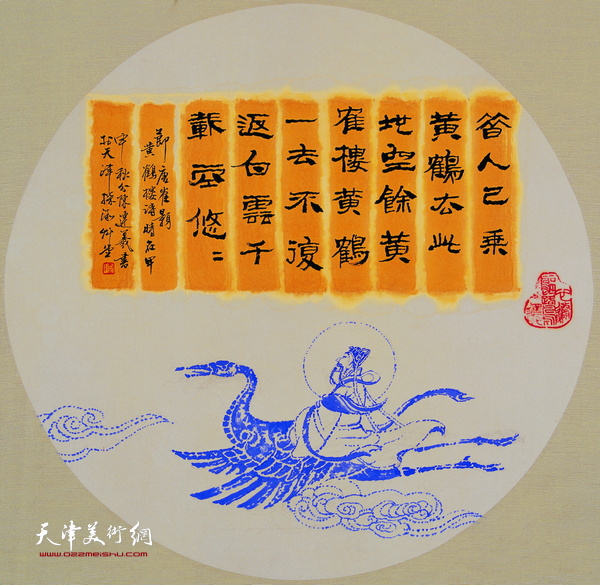 昔人已乘
黄鶴去此
地空餘黄
隺樓黄鶴
一去不復
返白雲千
載空悠〻
節唐崔顥
黄鶴樓詩時在甲
申秋分陳連羲書
於天津艸堂
天津美術網
www.022meishu.com